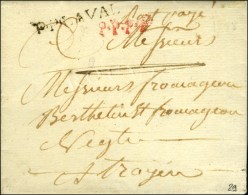 P.P. LAVAL
P.P.P.P.
Port payé
Messieurs
Messieurs fromageau
Berthelin et fromageau
Negts
a troyes